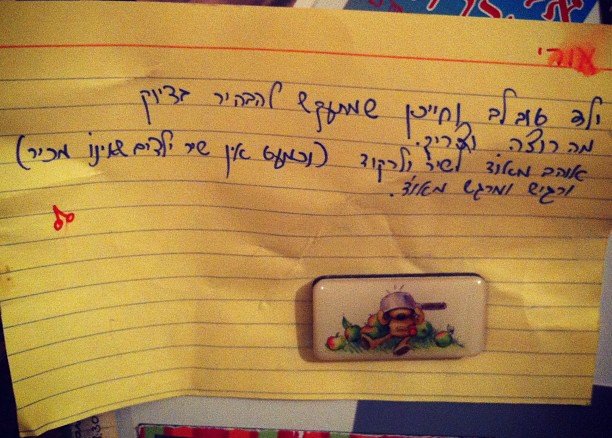 אורי
ילד טוב לב וחייכן שמתעקש להבהיר בדיוק
מה רוצה. וצריך.
אוהב מאוד לשיר ולרקוד (וכמעט אין שיר ילדים שאינו מכיר)
ורגיש ומרגש מאוד.